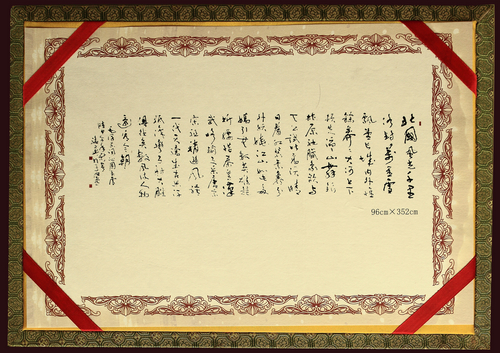 北國風光千里
冰封萬里雪
飄望長城内外惟
餘莽莽大河上下
頓失滔滔山舞銀
蛇原馳蠟象欲與
天公試比高須晴
日看紅裝素裹分
外妖嬈江山如此多
嬌引無數英雄競
折腰惜秦皇漢
武略輸文采唐
宗宋祖稍遜風騷
一代天驕成吉思汗
祇識彎弓射大雕
俱往矣數風流人物
還看今朝
96cm×352cm